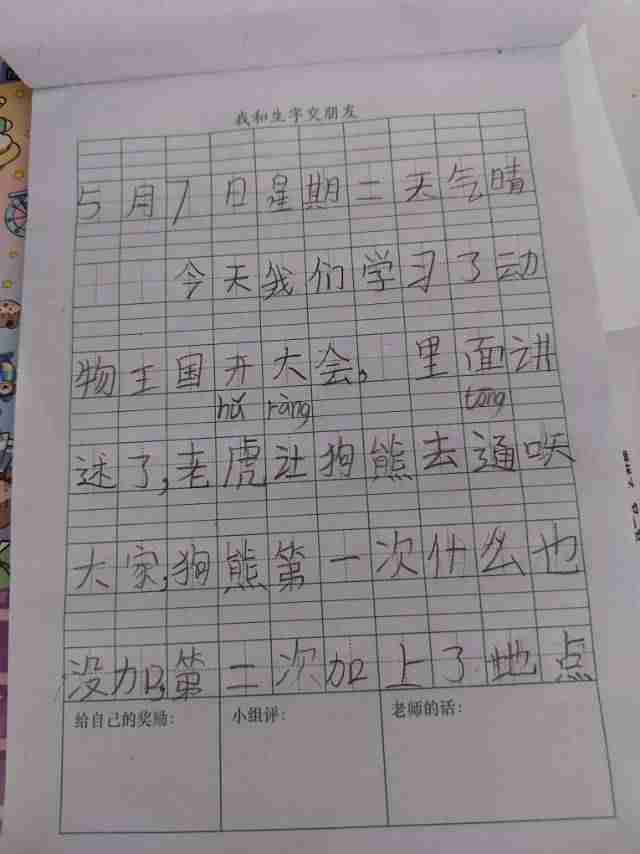 我和生字交朋友
5月7日星期二天气晴
今天我们学习了动
物王国开大会，里面讲
hǔ ràng tōng
述了，老虎让狗熊去通
大家，狗熊第一次什么也
没加，第二次加上了地点
给自己的奖励： 小组评： 老师的话：